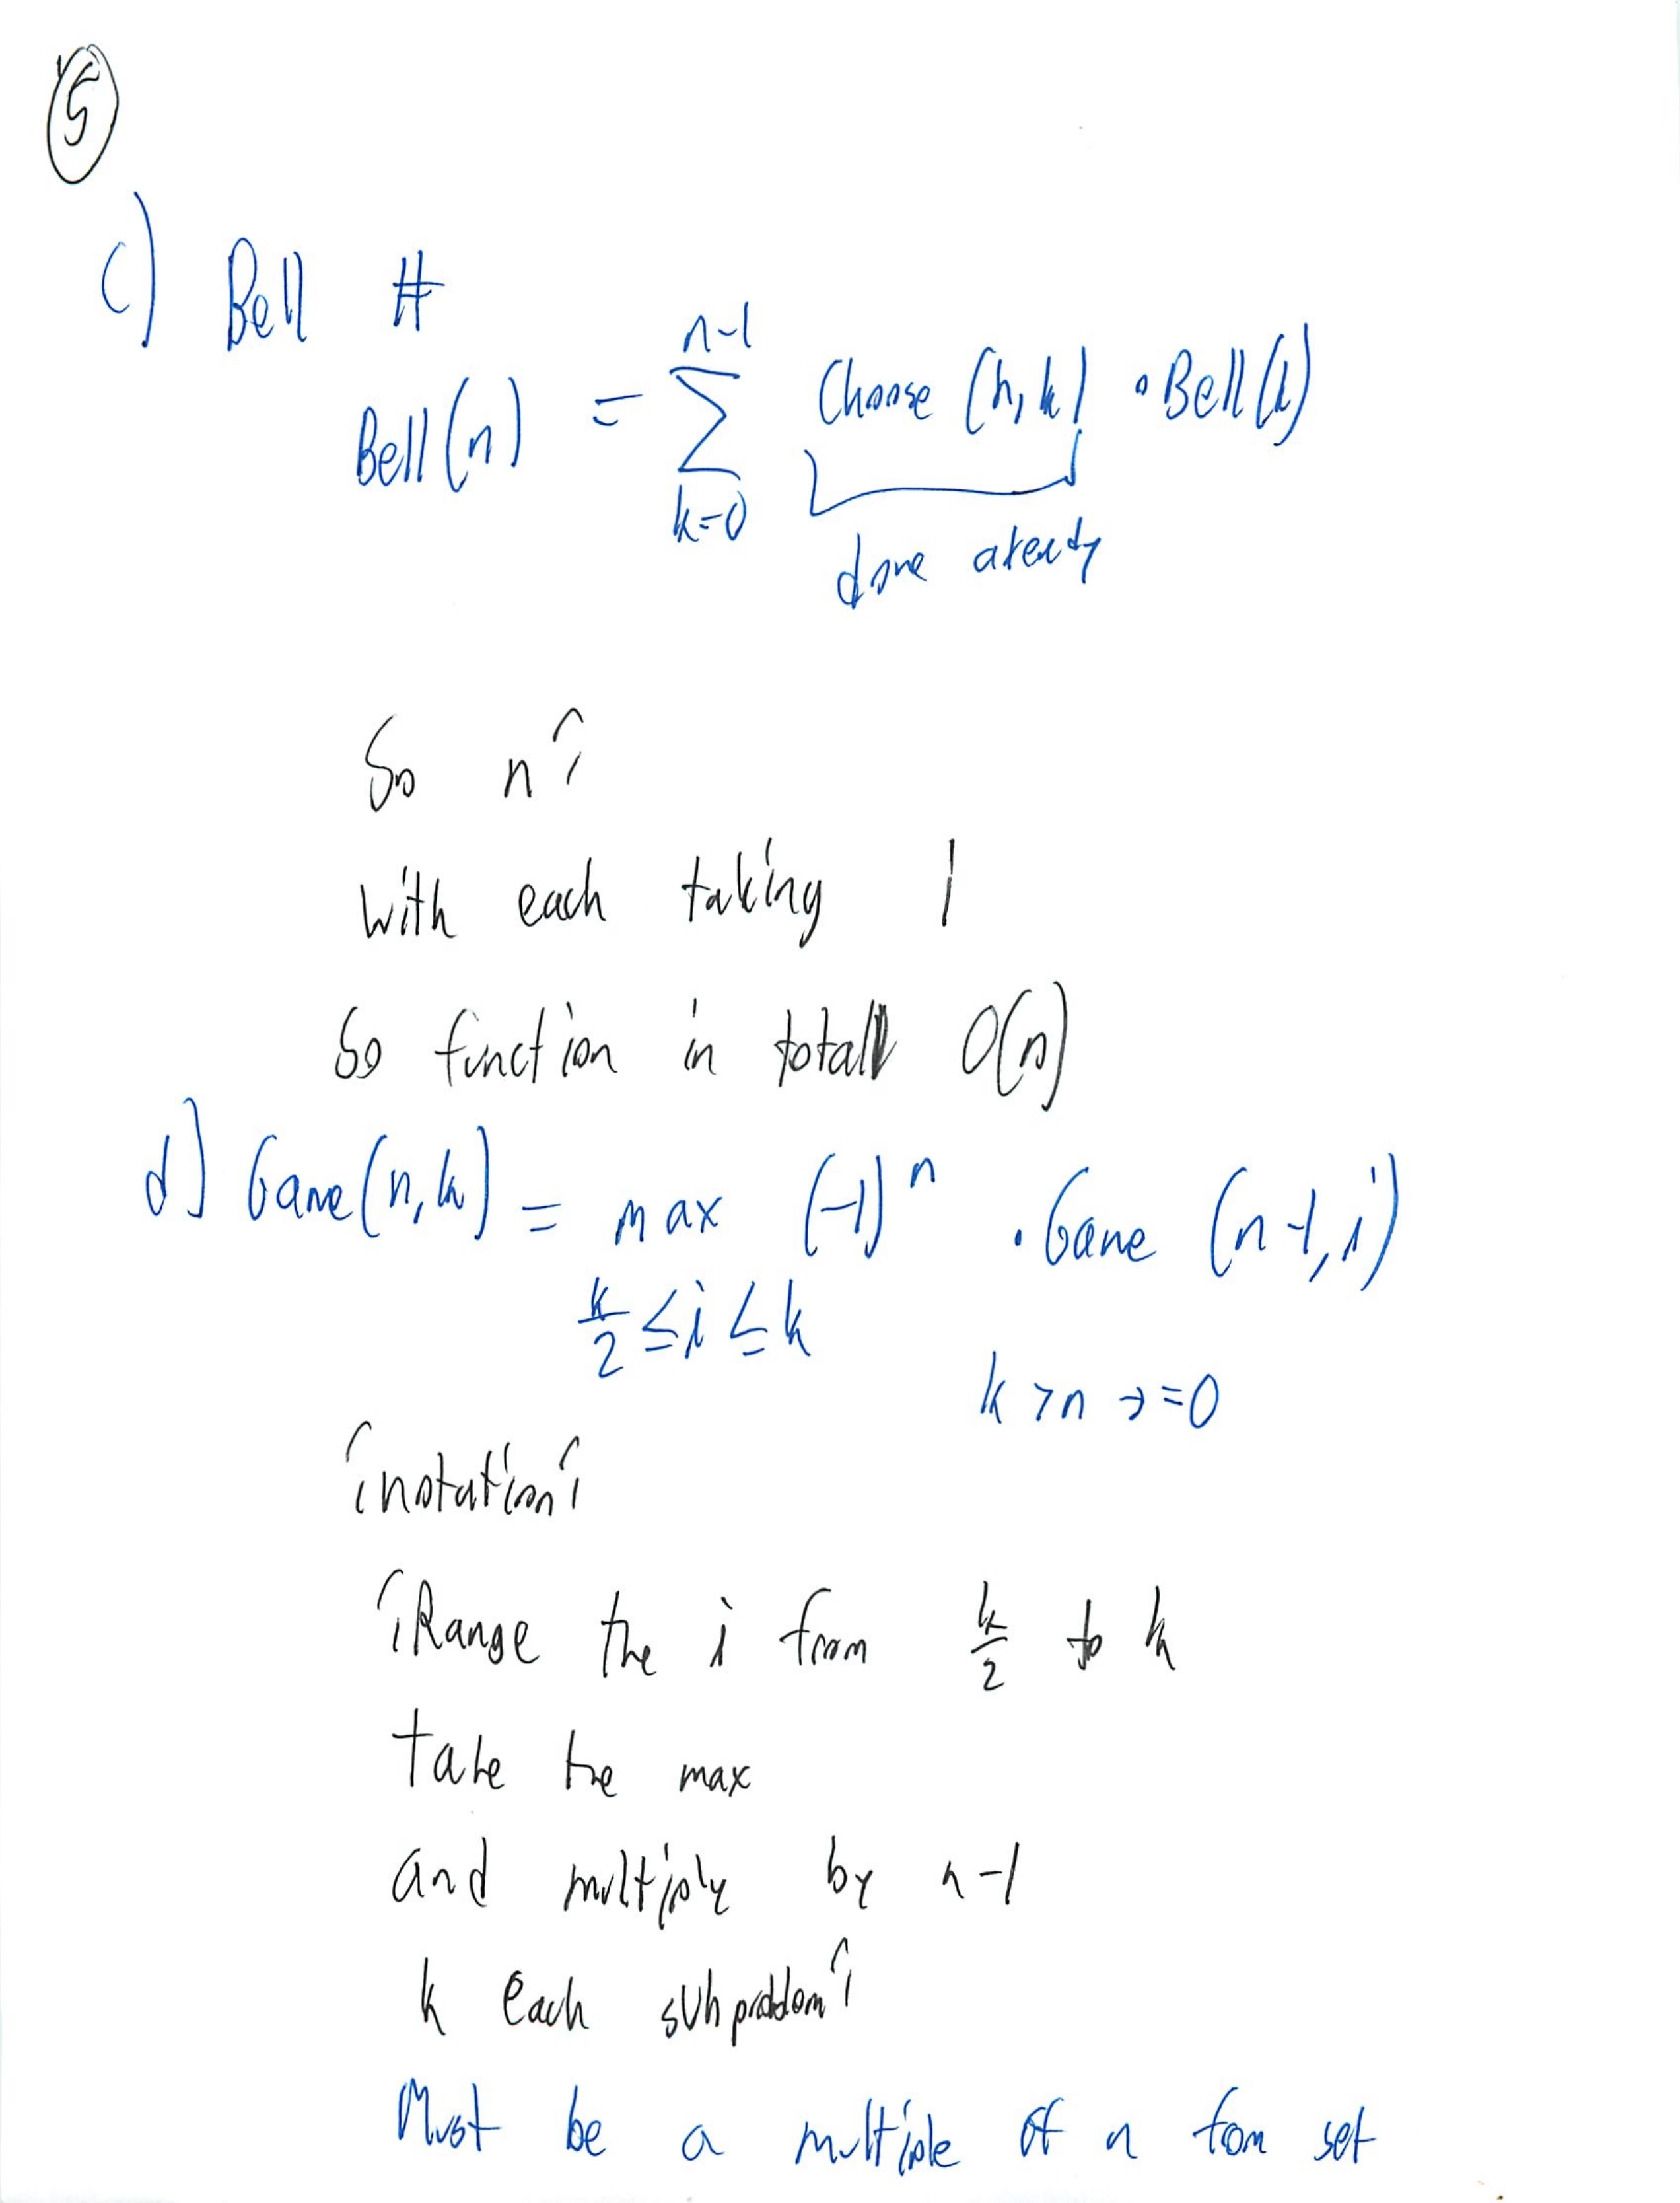 5
c) Bell #
Bell(n) = \sum_{k=0}^{n-1} Choose (n,k) · Bell(k)
done alredy
So n?
with each taking 1
So function in total O(n)
d) Game(n,k) = max (-1)^n · Game (n-1, i)
k/2 ≤ i ≤ k
k > n → = 0
¿notation?
¿Range the i from k/2 to k
take the max
and multiply by n-1
k each subproblem?
Must be a multiple of n from set